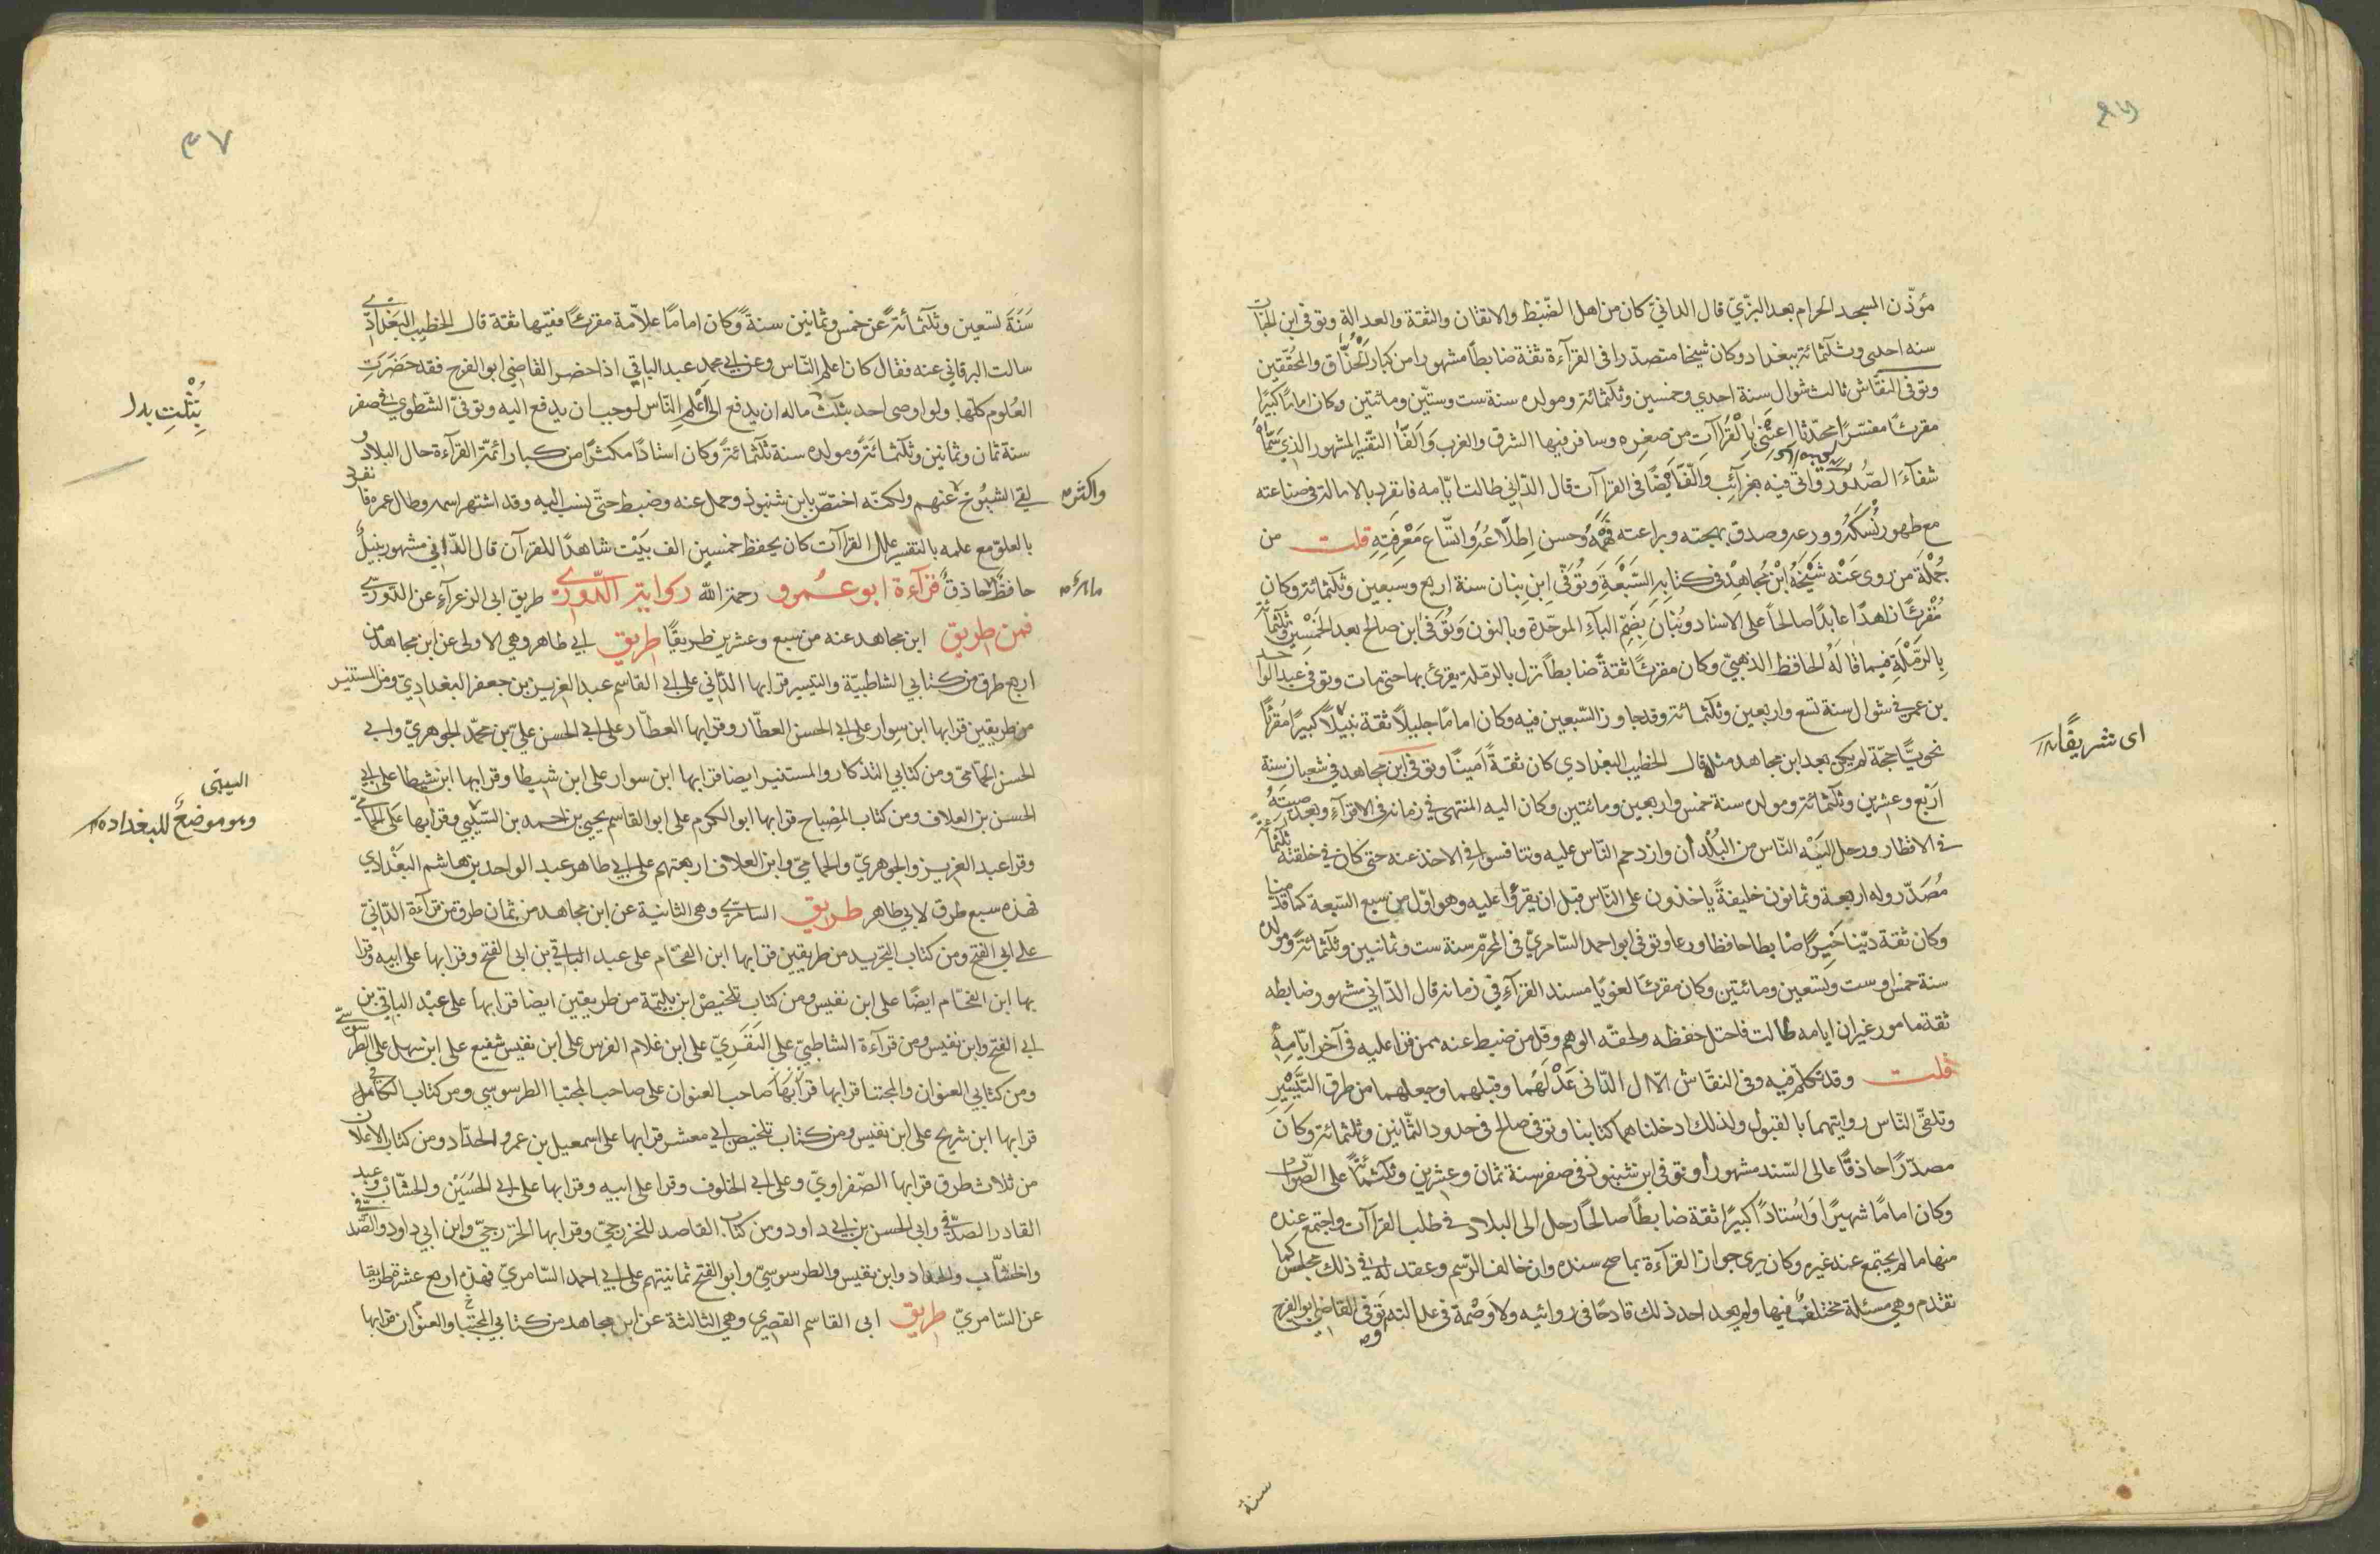 مؤذّن المسجد الحرام بعد البزّيّ قال الدانيّ كان من اهل الضّبط والاتقان والثقة والعدالة وتوفى ابن الحباب
سنه احدى وثلثمائة ببغداد وكان شيخا متصدرا فى القرآءة ثقة ضابطاً مشهورا من كبار الحُذّاق والمحَقّقين
وتوفى النقّاش ثالث شوال سنة احدي وخمسين وثلثمائة ومولده سنة ست وستّين ومائتين وكان اماماً كبيرا
مقرئًا مفسّرًا محدّثا اعتنى بالقراآت من صغره وسافر فيها الشرق والغرب وَالّفَ التفسير المشهور الذي سمّاه
شفآءَ الصّدُور واتى فيه بغرآئب والّف ايضًا فى القراآت قال الدّاني طالت ايّامه فانفرد بالامامة فى صناعته
مع ظهور نُسكه وورعه وصدق لهجته وبراعته فَهْمِه وحسن اطلاعه واتّساع معْرِفتِهِ قلت من
جُمْلَة مَن روى عَنْه شَيْخُهُ ابْنُ مُجاهِدْ فى كتابه السّبْعَة وَتُوَفّى ابنِ بنان سنة اربع وسبعين وثلثمائة وكان
مُقْرِئًا زاهدًا عابدًا صالحاً على الاسناد وبُنَان بِضَمّ البآءِ الموحّدة وبالنون وَتُوفى ابن صالح بعد الخمْسِين وثلثمائة
بِالرّمْلَةِ فيما قالَهُ الحافظ الذهبيّ وكان مقرئًا ثقةً ضابطاً نزل بالرّملة يقرئ بها حتى مات وتوفى عبد الواحد
بن عمر فى شوال سنة تسع واربعين وثلثمائة وقد جاوز السّبعين فيه وكان امامًا جليلاً ثقة نبيلاً كبيرًا مُقرئًا
اى شريفًا
نحويًّا حجّة لم يكن بعد ابن مجاهد مثله قال الخطيب البغدادي كان ثقةً اَمينًا وتوفى ابن مجاهد في شعبان سنة
اَربَع وعشرين وثلثمائة ومولده سنة خمس واربعين ومائتين وكان اليه المنتهى في زمانه فى الاقرآء وبعد صيتهُ
فى الاقطار ورحل اليْه النّاس من البُلْدان وازدحم النّاس عليه وتنافسوا فى الاخذ عنه حتى كان في حلقته ثلثمائة
مُصَدّر وله اربعة وثمانون خليفةً ياخذون على النّاس قبل ان يقرؤا عليه وهو اوّل من سبع السّبعة كما قدّمنا
وكان ثقة ديّنا خيرًا ضابطا حافظا ورعا وتوفى ابو احمد السّامريّ فى المحرّم سنة ست وثمانين وثلثمائة ومولده
سنة خمس وست وتسعين ومائتين وكان مقرئًا لغويًا مسند القرّآء في زمانه قال الدّاني مشهور ضابطه
ثقة مامور غير ان ايامه طالت فاختل حفظه ولحقه الوهم وقل من ضبط عنه ممن قرا عليه فى آخر ايّامِهِ
قلت وقد تكلم فيه وفى النقاش الّا ان الدّانى عَدْلَهُما وقبلهما وجعلهما من طرق التّيْسْير
وتلقّى النّاس روايتهما بالقبول ولذلك ادخلناهما كتابنا وتوفى صالح فى حدود الثّمانين وثلثمائة وكَانَ
مصدّرًا حاذقًا عالى السّند مشهورا وتوفى ابن شنبوذ فى صفر سنة ثمان وعشرين وثلثمائة على الصّواب
وكان امامًا شهيرًا وَاُستاذًا كبيرًا ثقة ضابطًا صالحاً رحل الى البلاد في طلب القراآت واجتمع عنده
منها ما لم يجتمع عند غيره وكان يرى جواز القرآءة بما صح سنده وان خالف الرّسم وعقد له في ذلك مجلس كما
تقدم وهي مسئلة مختلف فيها ولم يعد احد ذلك قادحًا فى روائيه ولا وَصْمة فى عدالته وتوفى القاضي ابو الفرج
سنة
٣٧
سَنَةَ تسعين وثلثمائة عن خمس وثمانين سنةً وكان امامًا علاّمة مقرئًا فقيها ثقة قال الخطيب البَغْدادّي
سالت البرقاني عنه فقال كان اعلم النّاس وعن ابي محمد عبد الباقي اذا حضر القاضي ابو الفرج فقد حَضَرَتِ
العُلوم كلّها ولو اوصى احد بثلث ماله ان يدفع الى اعْلم النّاس لوجب ان يدفع اليه وتوفىّ الشّطوي فى صفر
بِثُلْثِ بدا
سنة ثمان وثمانين وثلثمائةَ ومولده سنة ثلثمائة وكان استاذًا مكثرًا من كبار ائمّة القرآءة جال البلاد و
لقى الشيُوخ عنهم ولكنّه اختصّ بابن شنبوذ وحمل عنه وضبط حتّى نسب اليه وقد اشتهر اسمه وطال عمره فانفرد
واكثر
بالعلوّ مع علمه بالتفسير علل القراآت كان يحفظ خمسين الف بيَت شاهدًا للقرآن قال الدّانى مشهور نبيلُ
حافظٌ حاذقٌ قرآءة ابو عَمرو رحمة الله رواية الدّورى طريق ابى الزعرآءِ عن الدّوريّ
فمن طريق ابن مجاهد عنه من سبع وعشرين طريقًا طريق ابي طاهر وهي الاولى عن ابن مجاهد من
اربع طرق من كتابي الشاطبيّة والتيسير قرا بها الدّاني على ابى القاسم عبد العزيز بن جعفر البغداديّ ومن المستنير
من طريقين قرا بها ابن سوار على ابى الحسن العطار وقرا بها العطّار على ابى الحسن عليّ بن محمّد الجوهريّ وابي
الحسن الحماميّ ومن كتابي التذكار والمستنير ايضا قرا بها ابن سوار على ابن شيطا وقرا بها ابن شيطا على ابي
الحسن بن العلاف ومن كتاب المِصْباح قرا بها ابو الكرم على ابو القاسم يحيى بن احمد بن السّيبي وقرا بها على الحمامّى
السيبى
وهو موضعٌ للبغداده
وقرا عبد العزيز والجوهريّ والحماميّ وابن العلاف اربعتهم على ابي طاهر عبد الواحد بن هاشم البَغْدادي
فهذه سبع طرق لابي طاهر طريق السامّرى وهى الثانية عن ابن مجاهد من ثمان طرق من قرآءة الدّانيّ
على ابى الفتح ومن كتاب التجريد من طريقين قرا بها ابن الفحّام على عبد الباقي بن ابى الفتح وقرا بها على ابيه وقرا
بها ابن الفحّام ايضًا على ابن نفيس ومن كتاب تلخيصْ ابن بليّمة من طريقين ايضا قرا بها على عبْد الباقي بن
ابي الفتح وابن نفيس ومن قرآءة الشاطبيّ على النفَزيّ على ابن غلام الفرس على ابن نفيس شفيع على ابن سهل على الطرسوسّي
ومن كتابي العنوان والمجتنا قرا بها قرا بَهَا صَاحب العنوان على صاحب المجتبا الطرسوسي ومن كتاب الكافى
قرا بها ابن شريح على ابن نفيس ومن كتاب تلخيص ابي معشر قرا بها على اسمعيل بن عمرو الحدّاد ومن كتاب الاعلان
من ثلاث طرق قرا بها الصّفراويّ وعلى ابى الخلوف وقرا على ابيه وقرا بها على ابى الحُسَيْن والخشّاب وعبد
القادر الصدّفى وابى الحسن بن ابي داود ومن كتاب القاصد للخزرجيّ وقرا بها الخزرجيّ وابن ابي داود والصّدفّى
والخشّاب والحداد وابن نفيس والطرسوسيّ وابو الفتح ثمانيتهم على ابي احمد السّامريّ فهذه اربع عشرة طريقا
عن السّامريّ طريق ابى القاسم القصيرى وهي الثالثة عن ابن مجاهد من كتابي المجتبا والعنوان قرا بها